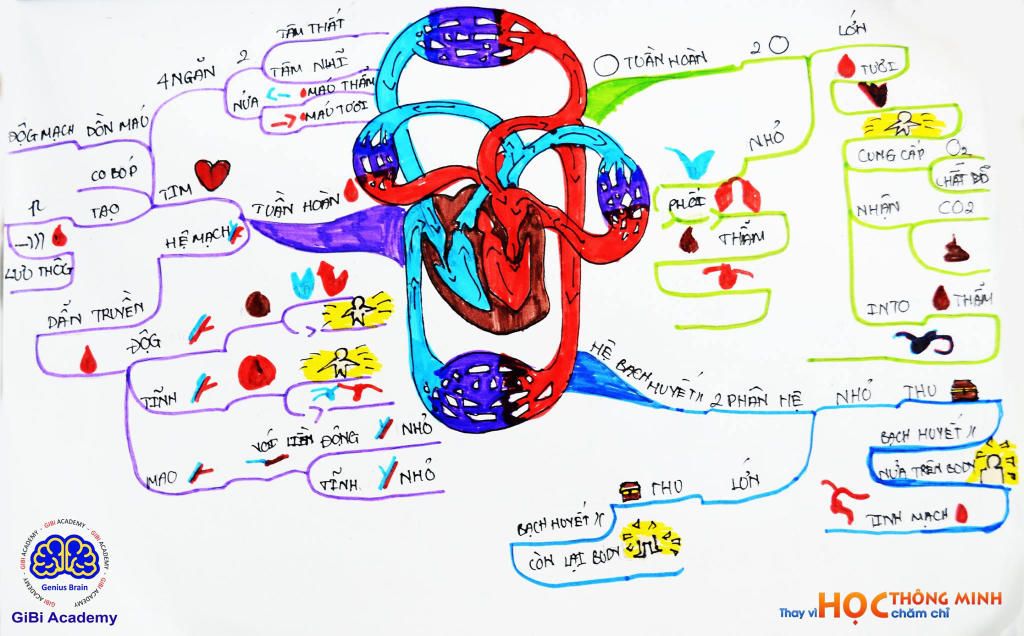 TÂM THẤT
TÂM NHĨ
2
4 NGĂN
NỬA
MÁU THẪM
MÁU TƯƠI
ĐỘG MẠCH DỒN MÁU
CO BÓP
TẠO
LƯU THÔG
TIM
HỆ MẠCH
TUẦN HOÀN
DẪN TRUYỀN
ĐỘG
TĨNH
MAO
NỐI LIỀN ĐỘNG
NHỎ
TĨNH
NHỎ
TUẦN HOÀN
2
LỚN
TƯƠI
CUNG CẤP O2
CHẤT DD
NHẬN CO2
INTO THẪM
NHỎ
PHỔI
THẪM
HỆ BẠCH HUYẾT
2 PHÂN HỆ
NHỎ
THU
BẠCH HUYẾT
NỬA TRÊN BODY
TĨNH MẠCH
LỚN
THU
BẠCH HUYẾT
CÒN LẠI BODY
GIBI ACADEMY - GIBI ACADEMY - GIBI ACADEMY - GIBI ACADEMY
Genius Brain
GiBi Academy
Thay vì HỌC THÔNG MINH
chăm chỉ